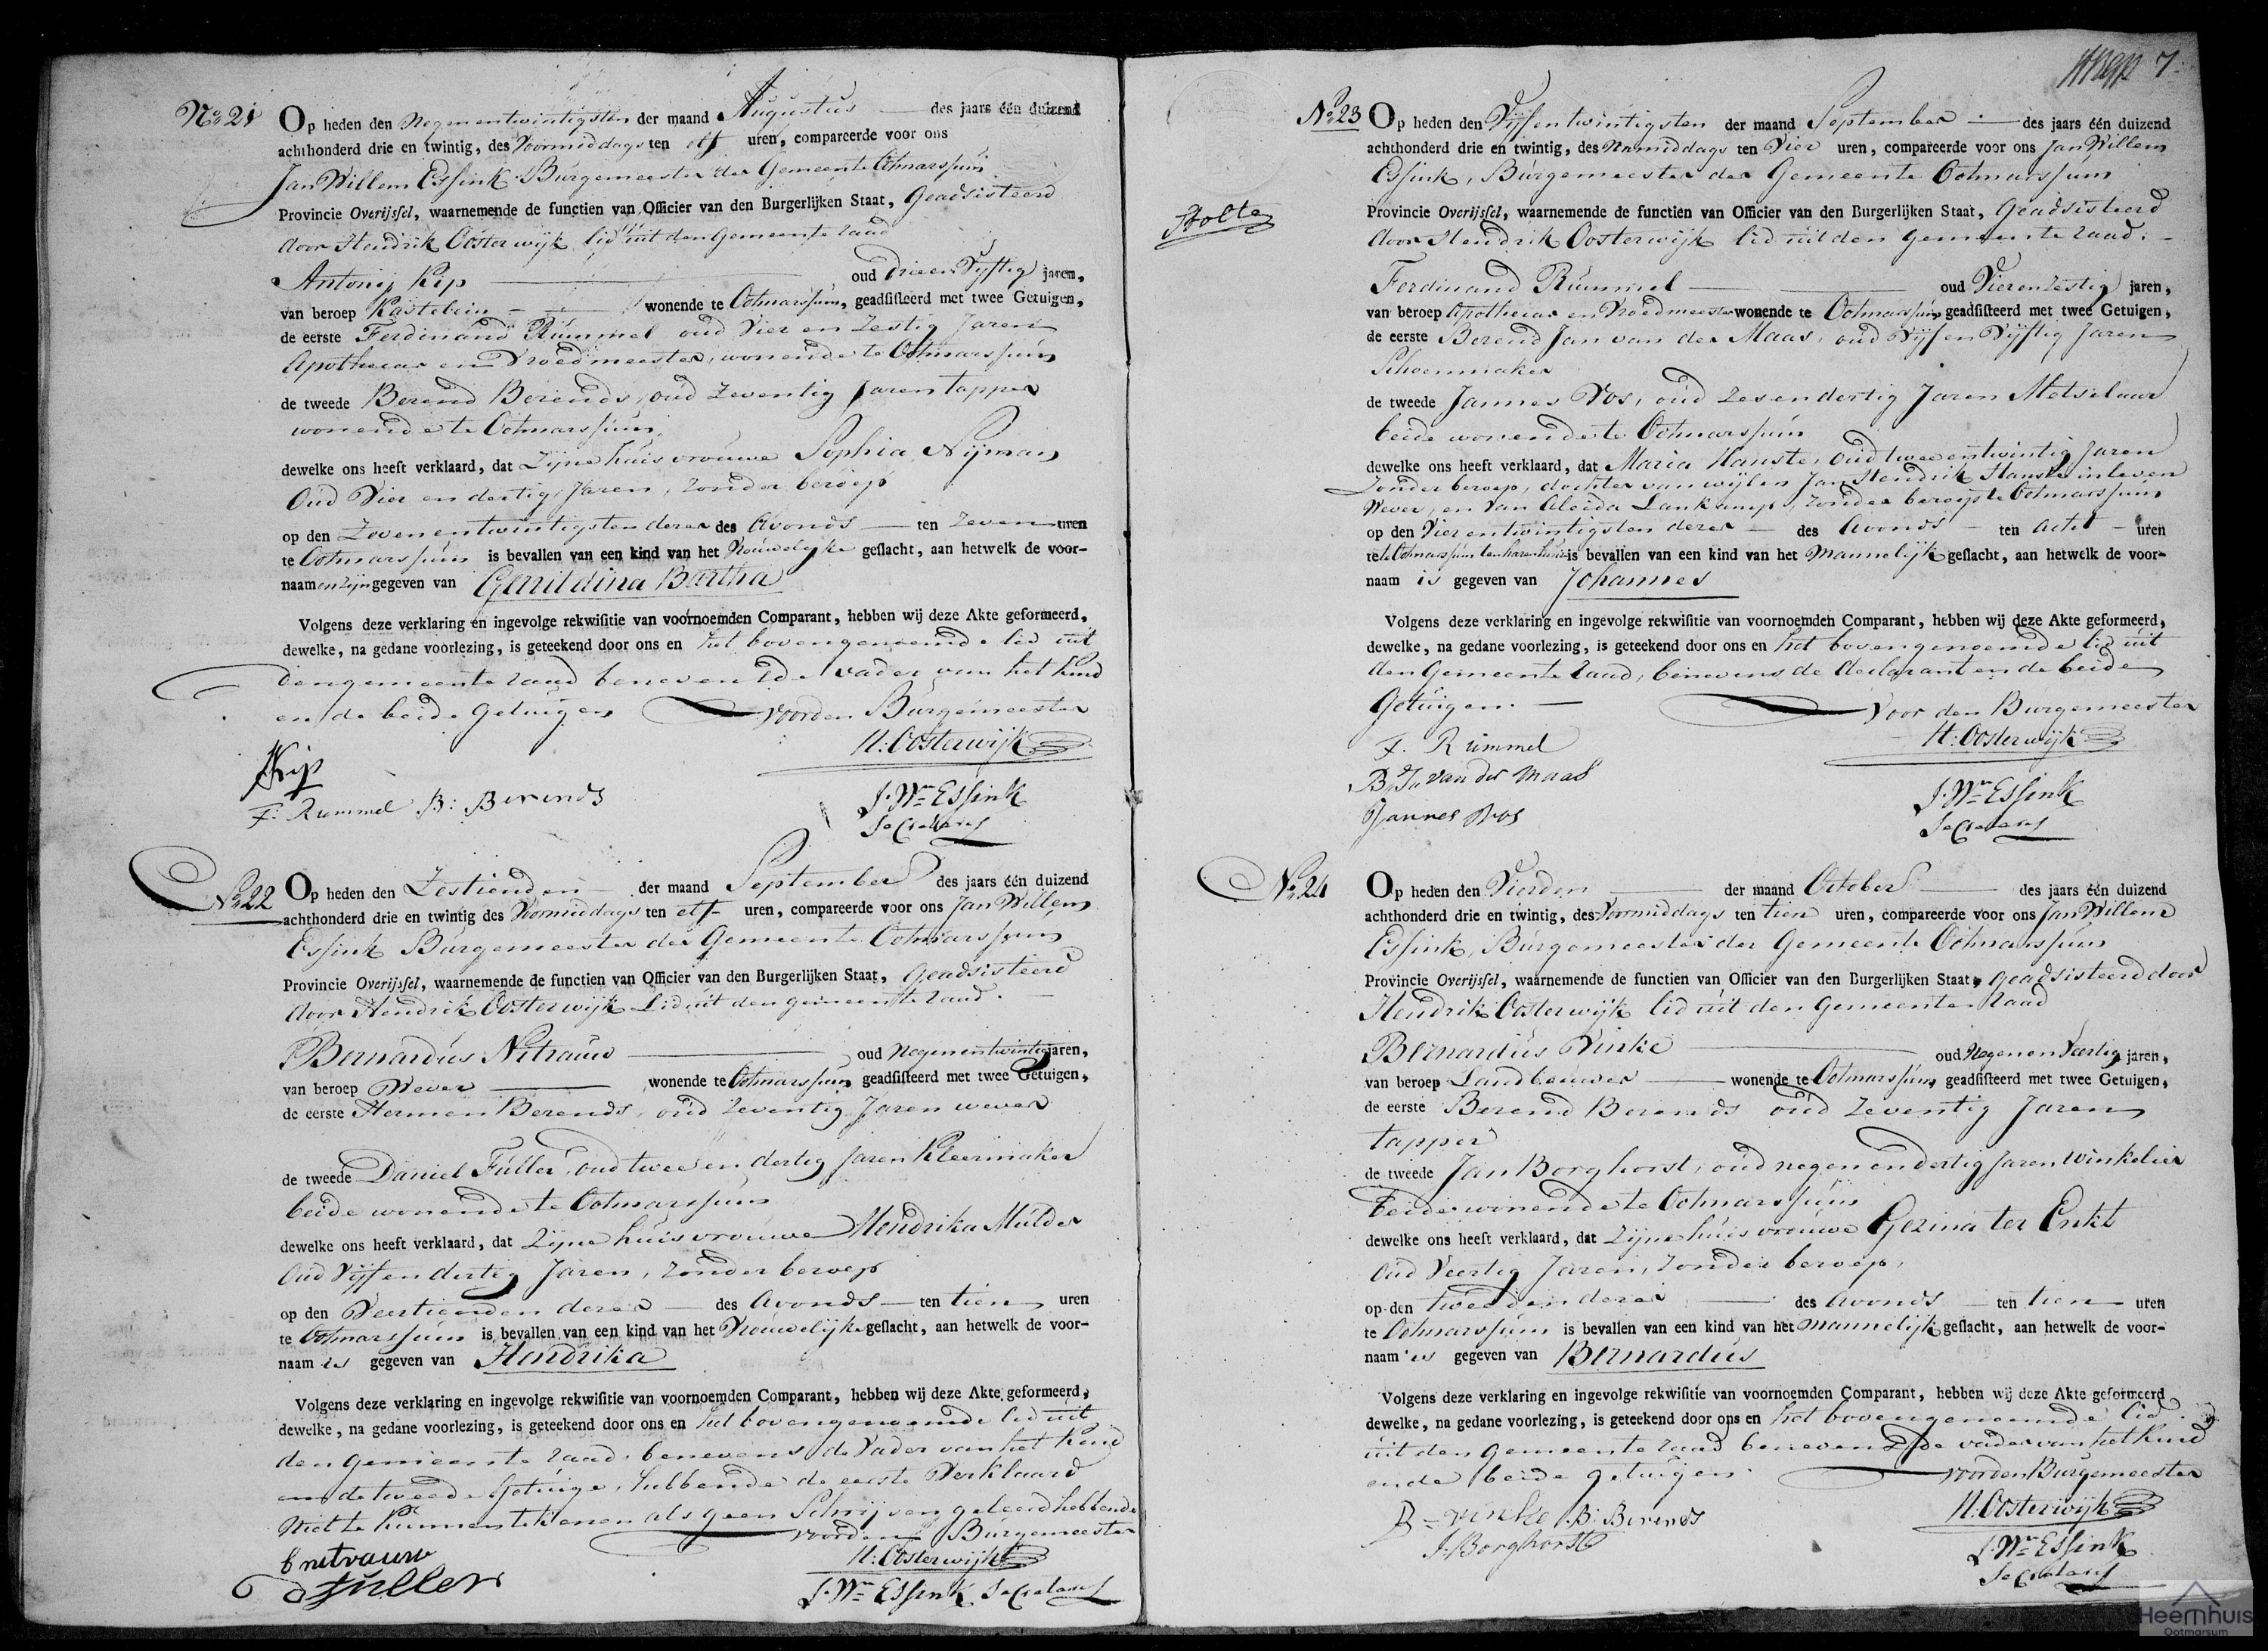 No 21 Op heden den Negenentwintigsten der maand Augustus des jaars één duizend
achthonderd drie en twintig, des Voormiddags ten elf uren, compareerde voor ons
Jan Willem Essink Burgemeester der Gemeente Ootmarssum
Provincie Overijssel, waarnemende de functien van Officier van den Burgerlijken Staat, Geadsisteerd
door Hendrik Oosterwijk lid uit den Gemeente raad
Antonij Kip oud drieenVyftig jaren,
van beroep Kastelein wonende te Ootmarssum, geadsisteerd met twee Getuigen,
de eerste Ferdinand Rümmel oud Vier en Zestig Jaren
Apothecar en Vroedmeester, wonende te Ootmarssum
de tweede Berend Berends, oud Zeventig Jaren tapper
wonende te Ootmarssum
dewelke ons heeft verklaard, dat Zijne huisvrouwe Sophia Nijman
Oud Vier en dertig Jaren, zonder beroep
op den Zevenentwintigsten dezer des Avonds ten Zeven uren
te Ootmarssum is bevallen van een kind van het Vrouwelijke geslacht, aan hetwelk de voor-
naam en zijn gegeven van Gerritdina Bertha
Volgens deze verklaring en ingevolge rekwisitie van voornoemden Comparant, hebben wij deze Akte geformeerd,
dewelke, na gedane voorlezing, is geteekend door ons en het bovengenoemde lid uit
den gemeente raad benevens de vader van het kind
en de beide Getuigen voor den Burgemeester
H: Oosterwijk
AKip
F: Rummel B: Berends
J. Wm Essink
Secretaris
No 22 Op heden den Zestienden der maand September des jaars één duizend
achthonderd drie en twintig des Voormiddags ten elf uren, compareerde voor ons Jan Willem
Essink Burgemeester der Gemeente Ootmarssum
Provincie Overijssel, waarnemende de functien van Officier van den Burgerlijken Staat, Geadsisteerd
door Hendrik Oosterwijk Lid uit den gemeente raad.
Bernardus Netrauw oud Negenentwintig jaren,
van beroep Wever wonende te Ootmarssum geadsisteerd met twee Getuigen,
de eerste Hermen Berends, oud Zeventig Jaren wever
de tweede Daniel Fuller, oud twee en dertig Jaren Kleermaker
beide wonende te Ootmarssum
dewelke ons heeft verklaard, dat Zijne huisvrouwe Hendrika Mulder
Oud Vijf en dertig Jaren, zonder beroep
op den Veertienden dezer des Avonds ten tien uren
te Ootmarssum is bevallen van een kind van het Vrouwelijke geslacht, aan hetwelk de voor-
naam is gegeven van Hendrika
Volgens deze verklaring en ingevolge rekwisitie van voornoemden Comparant, hebben wij deze Akte geformeerd,
dewelke, na gedane voorlezing, is geteekend door ons en het bovengenoemde lid uit
den gemeente raad benevens de Vader van het Kind
en de tweede Getuige, hebbende de eerste Verklaard
Niet te kunnen tekenen als geen Schrijven geleerd hebbende
voor den Burgemeester
b netrauw
H: Oosterwijk
d fuller
J. Wm Essink Secretaris
7
No 23 Op heden den Vijfentwintigsten der maand September des jaars één duizend
achthonderd drie en twintig, des Namiddags ten Vier uren, compareerde voor ons Jan Willem
Essink, Burgemeester der Gemeente Ootmarssum
Holte
Provincie Overijssel, waarnemende de functien van Officier van den Burgerlijken Staat, Geadsisteerd
door Hendrik Oosterwijk lid uit den gemeente raad.
Ferdinand Rümmel oud Vierenzestig jaren,
van beroep Apothecar en Vroedmeester wonende te Ootmarssum geadsisteerd met twee Getuigen,
de eerste Berend Jan van der Maas, oud Vijf en Vijftig Jaren
Schoenmaker
de tweede Jannes Vos, oud Zesendertig Jaren Metselaar
beide wonende te Ootmarssum
dewelke ons heeft verklaard, dat Maria Hauste, oud twee entwintig Jaren
Zonder beroep, dochter van wijlen Jan Hendrik Hauste in leven
Wever, en van Aleida Lankamp, zonder beroep te Ootmarssum
op den Vier entwintigsten dezer des Avonds ten acht uren
te Ootmarssum ten haren huize is bevallen van een kind van het Mannelijk geslacht, aan hetwelk de voor-
naam is gegeven van Johannes
Volgens deze verklaring en ingevolge rekwisitie van voornoemden Comparant, hebben wij deze Akte geformeerd,
dewelke, na gedane voorlezing, is geteekend door ons en het bovengenoemde lid uit
den Gemeente raad, benevens de declarant en de beide
Getuigen. Voor den Burgemeester
F. Rümmel
H: Oosterwijk
B. Jn van der maas
J. Wm Essink
Jannes Vos
Secretaris
No 24 Op heden den Vierden der maand October des jaars één duizend
achthonderd drie en twintig, des Voormiddags ten tien uren, compareerde voor ons Jan Willem
Essink, Burgemeester der Gemeente Ootmarssum
Provincie Overijssel, waarnemende de functien van Officier van den Burgerlijken Staat, geadsisteerd door
Hendrik Oosterwijk lid uit den Gemeente raad
Bernardus Vinke oud Negen en Veertig jaren,
van beroep Landbouwer wonende te Ootmarssum geadsisteerd met twee Getuigen,
de eerste Berend Berends oud Zeventig Jaren
tapper
de tweede Jan Borghorst, oud negen en dertig Jaren Winkelier
beide wonende te Ootmarssum
dewelke ons heeft verklaard, dat Zijne huisvrouwe Gezina ter Enkt
Oud Veertig Jaren, Zonder beroep,
op den tweeden dezer des Avonds ten tien uren
te Ootmarssum is bevallen van een kind van het mannelijk geslacht, aan hetwelk de voor-
naam is gegeven van Bernardus
Volgens deze verklaring en ingevolge rekwisitie van voornoemden Comparant, hebben wij deze Akte geformeerd
dewelke, na gedane voorlezing, is geteekend door ons en het bovengenoemde lid
uit den gemeente raad benevens de vader van het kind
en de beide getuigen. voor den Burgemeester
B = vinke B: Berends
H. Oosterwijk
J. Borghorst
J. Wm Essink
Secretaris
Heemhuis
Ootmarsum